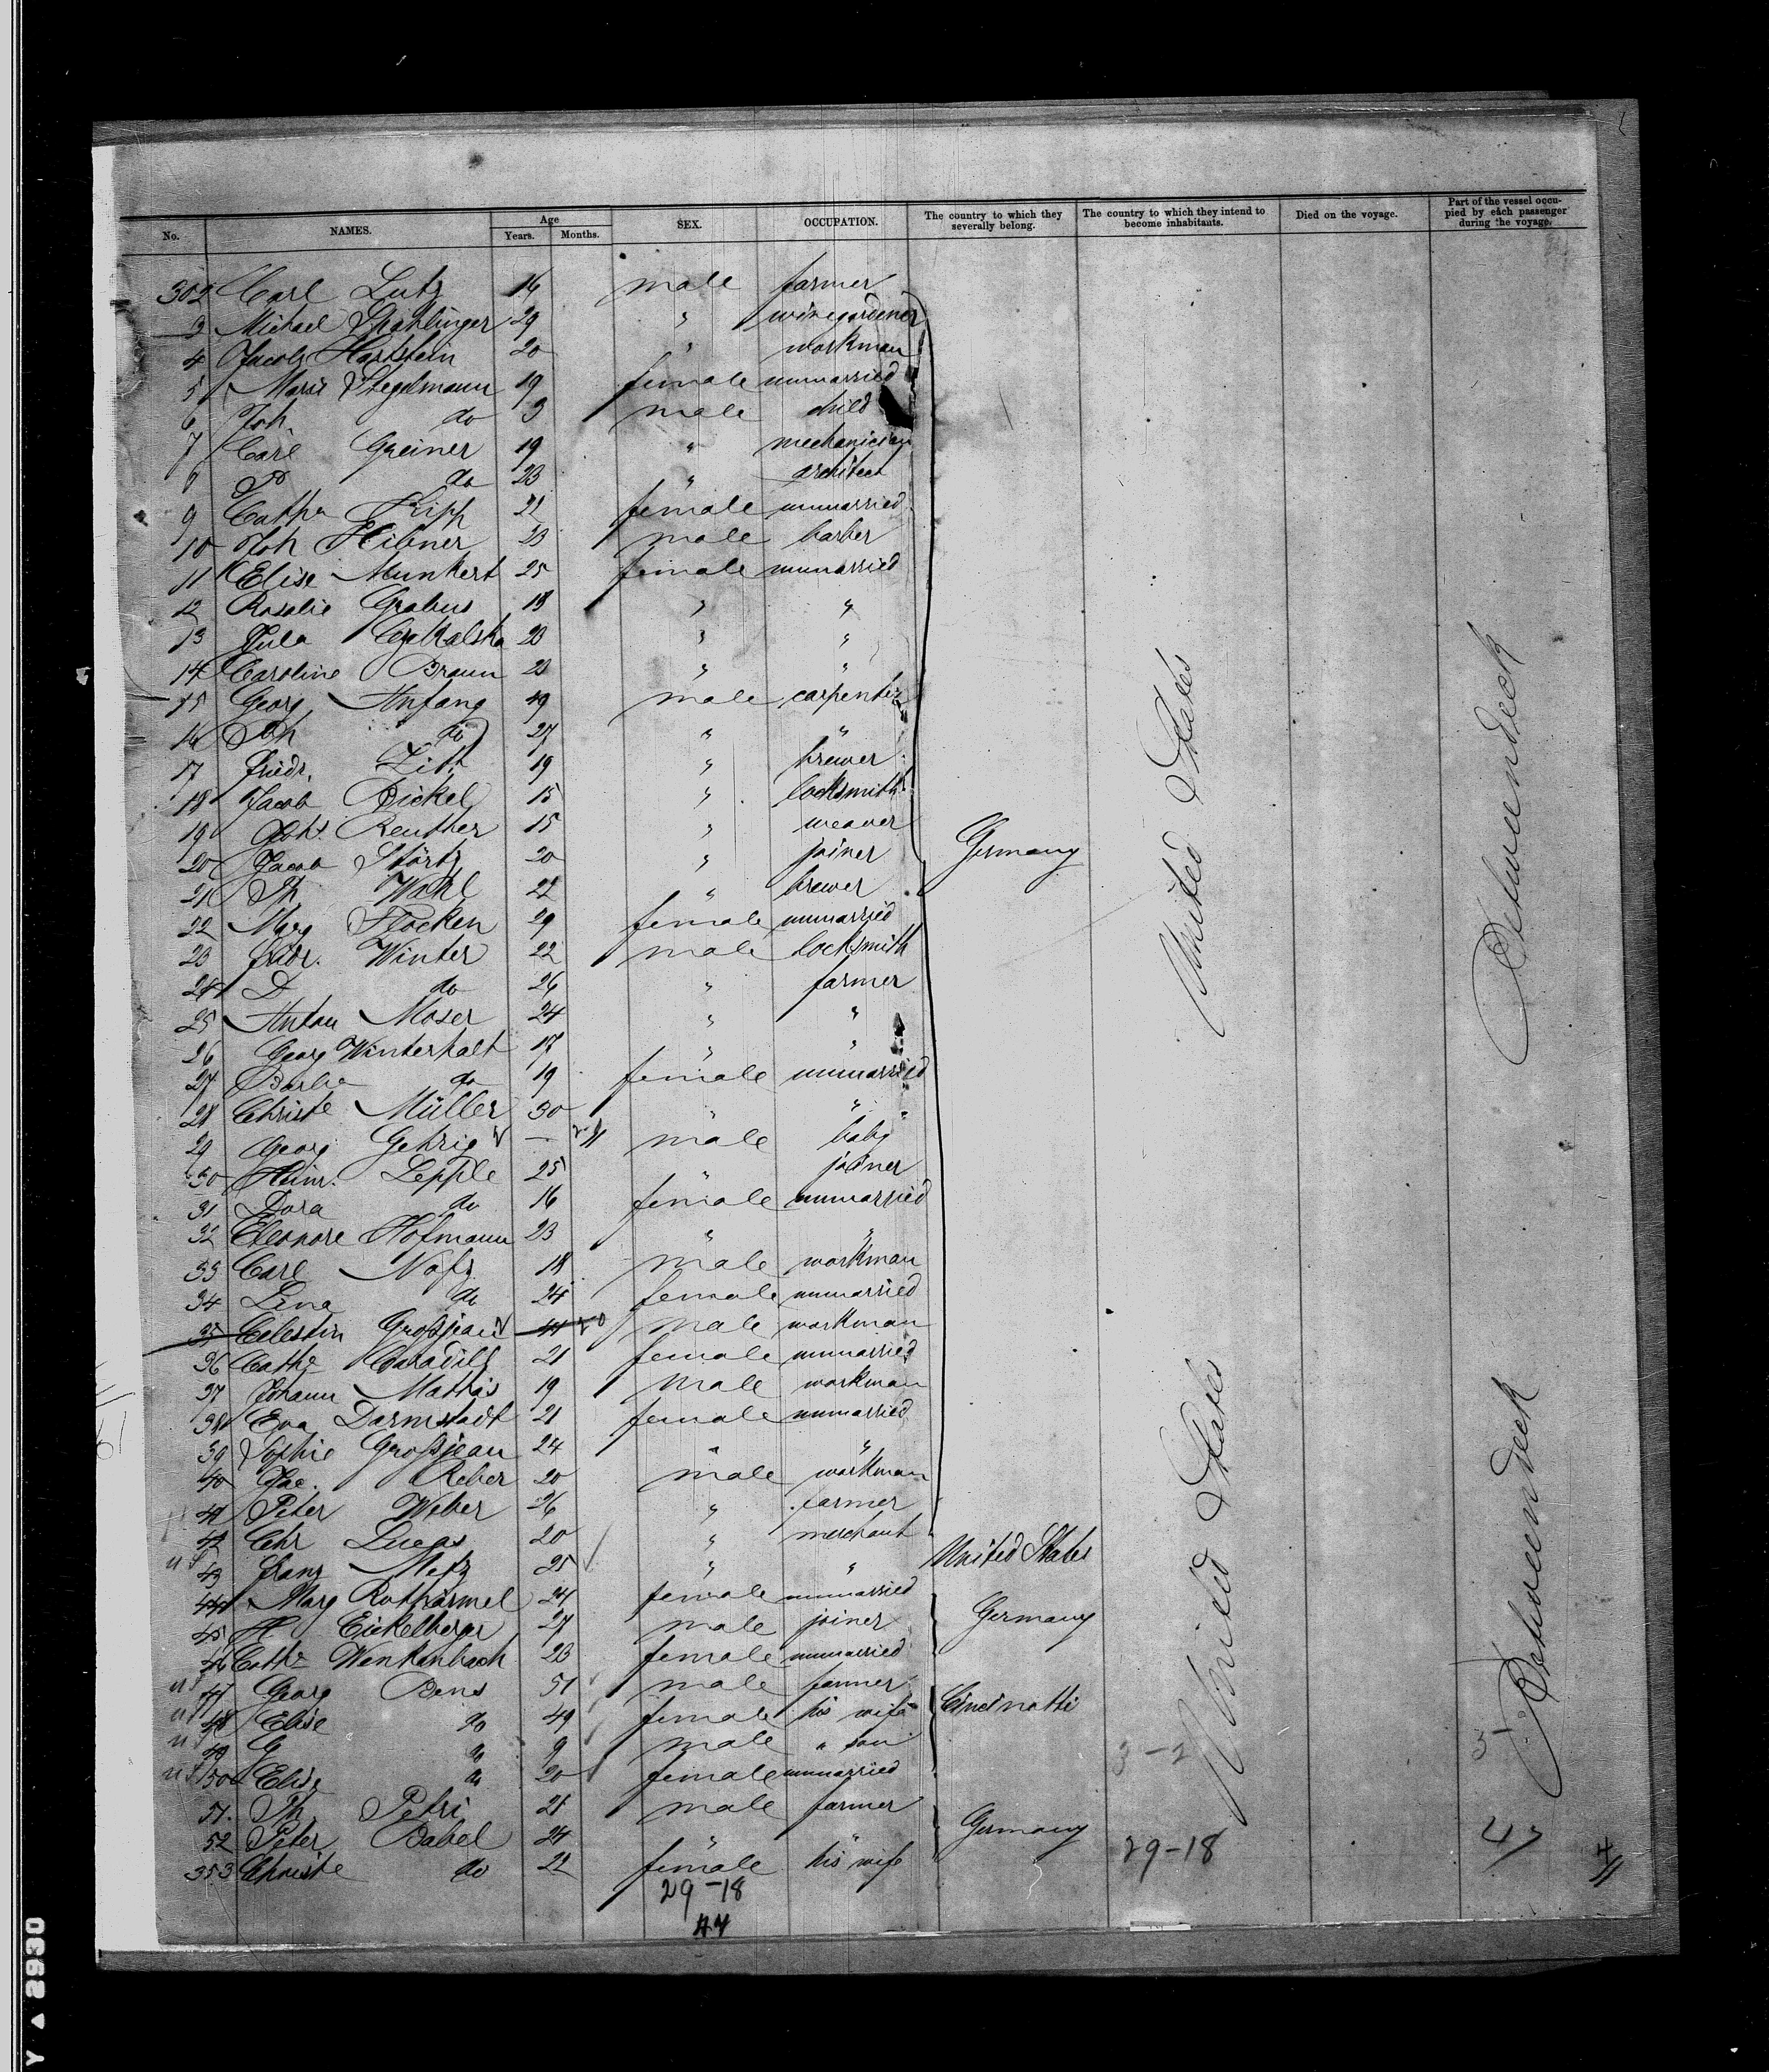 No. NAMES. Age Years. Months. SEX. OCCUPATION. The country to which they severally belong. The country to which they intend to become inhabitants. Died on the voyage. Part of the vessel occupied by each passenger during the voyage.
302 Carl Lutz 16 male farmer
3 Michael 29 " winegardener
4 Jacob Hartstein 20 " workman
5 Marie Stegelmann 19 female unmarried
6 Joh. do 3 male child
7 Carl Greiner 19 " mechanician
8 do 23 " architect
9 Catha Kipp 21 female unmarried
10 Joh Hibner 23 male barber
11 Elise Munkert 25 female unmarried
12 Rosalie Grabus 18 " "
13 Jula 23 " "
14 Caroline Braun 23 " "
15 Georg Anfang 49 male carpenter
16 Joh do 27 " "
17 Friedr. 19 " brewer
18 Jacob Bickel 15 " locksmith
19 Reuther 15 " weaver
20 Jacob Störtz 20 " joiner Germany
21 Ph Wahl 22 " brewer
22 Marg Flocken 29 female unmarried
23 Fidr. Winter 22 male locksmith
24 D do 26 " farmer
25 Anton Moser 24 " "
26 Georg Winterhalt 17 " "
27 Barba do 19 female unmarried
28 Christe Müller 30 " "
29 Georg Gehrig — 11 male baby
30 Heinr. Lepple 25 " joiner
31 Dora do 16 female unmarried
32 Eleonore Hofmann 23 " "
33 Carl 18 male workman
34 Lina do 24 female unmarried
35 Celestin Großjean male workman
36 Catha 21 female unmarried
37 Johann Mathis 19 male workman
38 Eva Darmstadt 21 female unmarried
39 Sophie Großjean 24 " "
40 Jac. Reber 20 male workman
41 Peter Weber 26 " farmer
42 Chr Lucas 20 " merchant
43 Franz Metz 25 " " United States
44 Marg Rothärmel 24 female unmarried
45 H Eickelberger 27 male joiner Germany
46 Catha Wenkenbach 23 female unmarried
47 Georg Bens 51 male farmer
48 Elise do 49 female his wife Cincinatti
49 G do 9 male " son
50 Elise do 20 female unmarried
51. Ph Petri 21 male farmer
52 Peter Babel 24 " " Germany
353 Christe do 22 female his wife
United States
United States
Betweendeck
Betweendeck
3-2
5
29-18
47
29-18
47